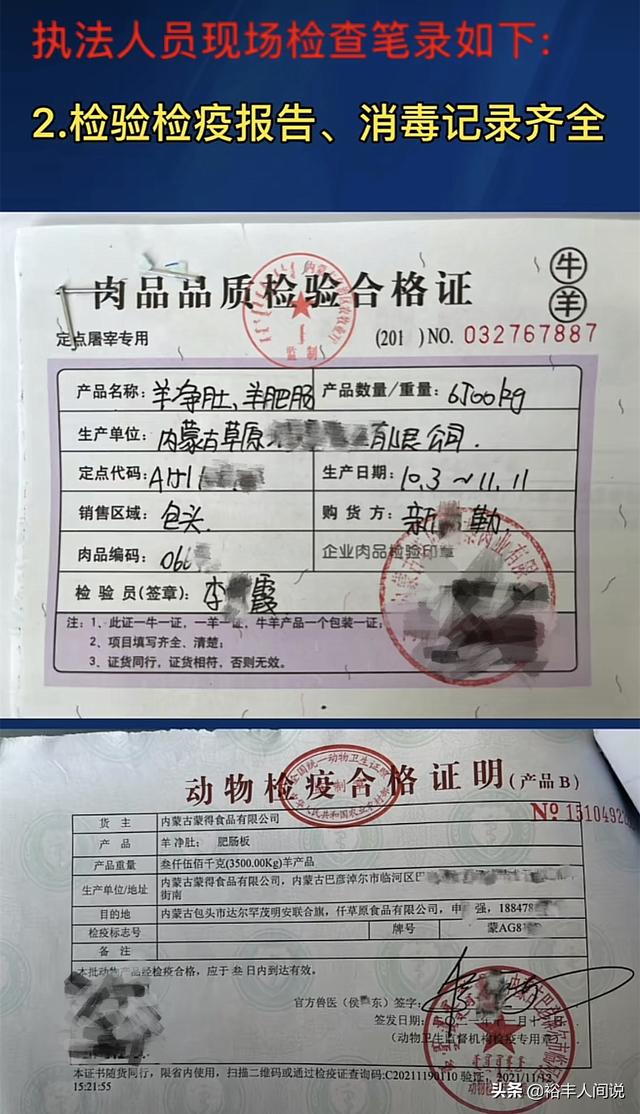 执法人员现场检查笔录如下:
2.检验检疫报告、消毒记录齐全
肉品品质检验合格证
牛
羊
定点屠宰专用
监制
(201 )NO. 032767887
产品名称: 羊净肚、羊肥肠 产品数量/重量: 6500kg
生产单位: 内蒙古草原 有限公司.
定点代码: A1511 生产日期: 10.3 ~ 11.11
销售区域: 包头 购货方: 新 勤
肉品编码: 066 企业肉品检验印章
检验员(签章): 李 霞
注: 1、此证一牛一证,一羊一证,牛羊产品一个包装一证;
2、项目填写齐全、清楚;
3、证货同行,证货相符,否则无效。
动物检疫合格证明(产品B)
No 1510492
货 主 内蒙古蒙得食品有限公司
产 品 羊 净肚; 肥肠板
产品重量 叁仟伍佰千克(3500.00Kg)羊产品
生产单位/地址 内蒙古蒙得食品有限公司,内蒙古巴彦淖尔市临河区
街南
目的地 内蒙古包头市达尔罕茂明安联合旗,仟草原食品有限公司,申 强,18847
检疫标志号 牌号 蒙AG8
备 注
本批动物产品经检疫合格,应于 叁 日内到达有效。
官方兽医(侯 东)签字:
签发日期:
(动物卫生监督机构检疫专用章)
本证书随货同行,限省内使用,扫描二维码或通过检疫证查询码:C20211190110 验证,2021/11/12
15:21:55
头条 @裕丰人间说